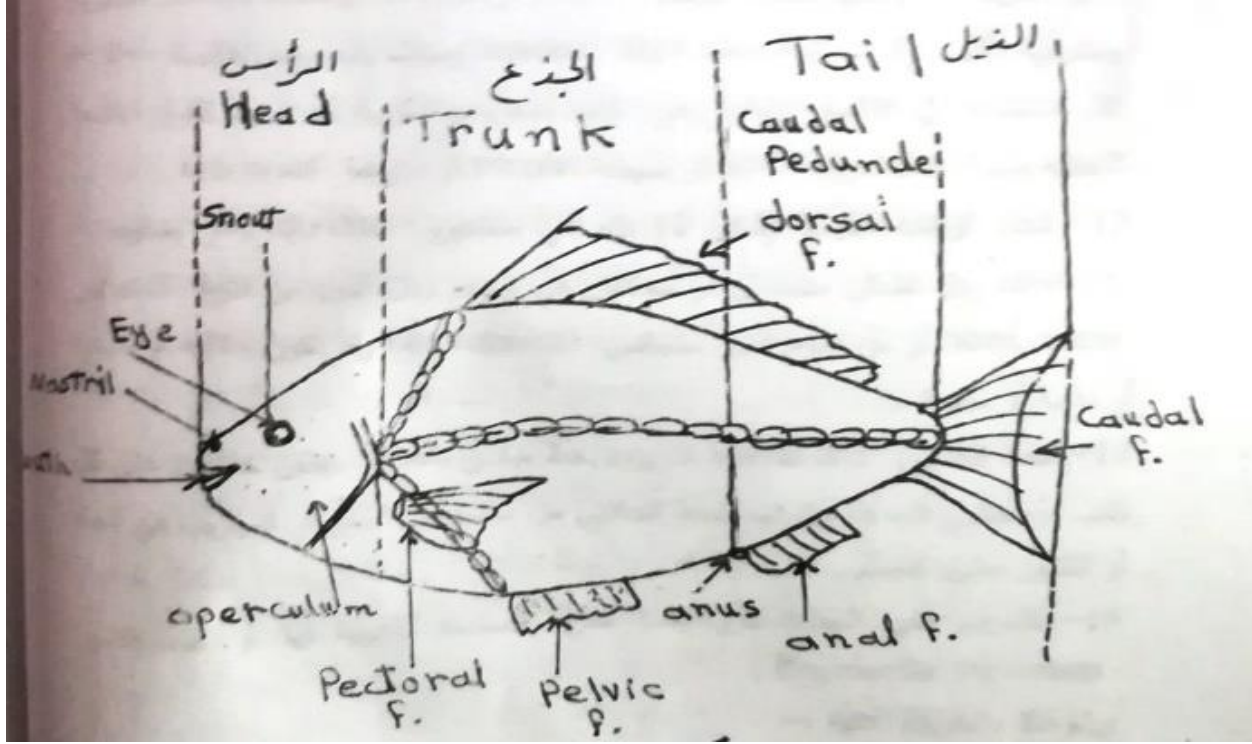 الرأس
Head
الجذع
Trunk
Tail الذيل
Caudal
Pedunde
Snout
dorsai
f.
Eye
Nostril
Caudal
f.
operculum
Pectoral
f.
Pelvic
f.
anus
anal f.